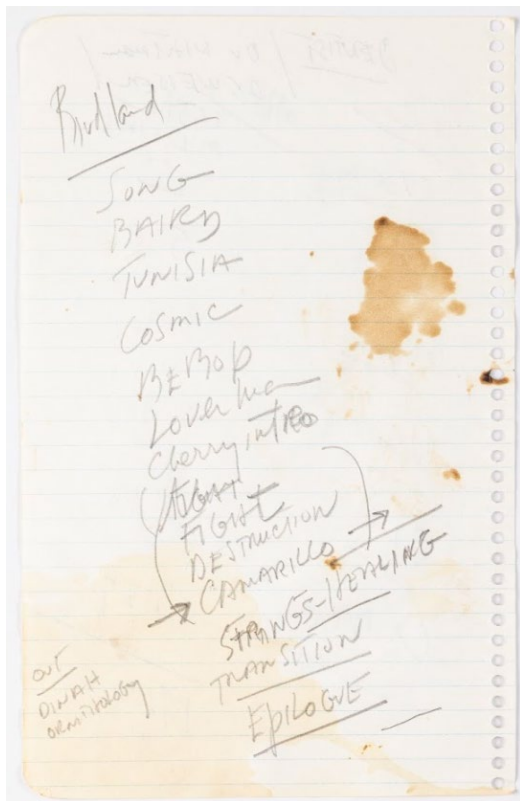 Birdland
SONG
BAIRD
TUNISIA
COSMIC
BEBOP
Lover Man
Cherry, INTRO
FIGHT
DESTRUCTION
CAMARILLO
STRINGS-HEALING
TRANSITION
EPILOGUE
OUT
DINAH
ORNITHOLOGY